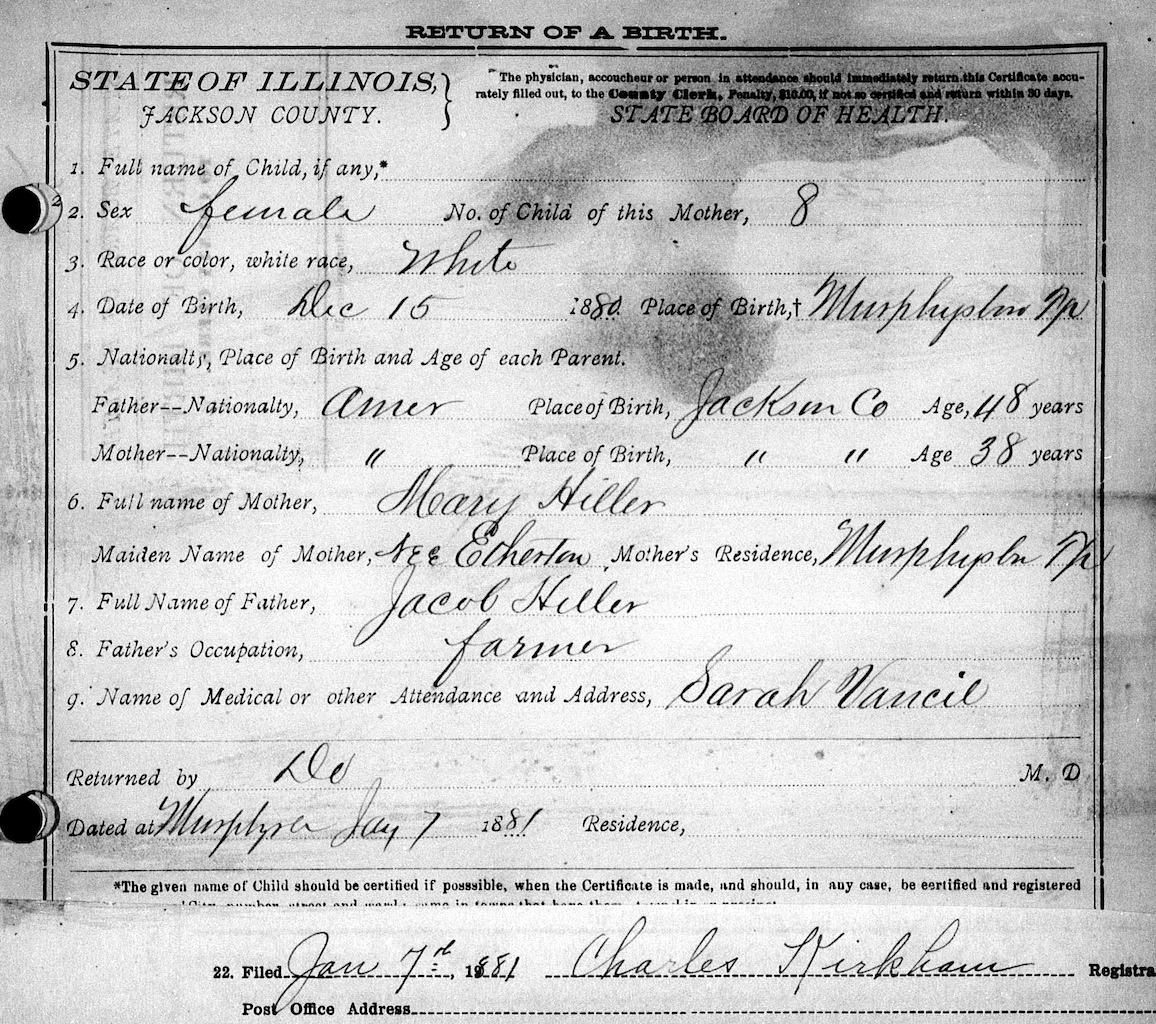 RETURN OF A BIRTH.
STATE OF ILLINOIS, } "The physician, accoucheur or person in attendance should immediately return this Certificate accu-
rately filled out, to the County Clerk, Penalty, $10.00, if not so certified and return within 30 days.
JACKSON COUNTY. STATE BOARD OF HEALTH.
1. Full name of Child, if any,*
2. Sex female No. of Child of this Mother, 8
3. Race or color, white race, White
4. Date of Birth, Dec 15 1880 Place of Birth,† Murphysboro Tp
5. Nationalty, Place of Birth and Age of each Parent.
Father--Nationalty, Amer Place of Birth, Jackson Co Age, 48 years
Mother--Nationalty, " Place of Birth, " " Age 38 years
6. Full name of Mother, Mary Hiller
Maiden Name of Mother, Nee Etherton Mother's Residence, Murphysbro Tp
7. Full Name of Father, Jacob Hiller
8. Father's Occupation, farmer
9. Name of Medical or other Attendance and Address, Sarah Vancil
Returned by Do M. D
Dated at Jany 7 1881 Residence,
*The given name of Child should be certified if posssible, when the Certificate is made, and should, in any case, be eertified and registered
22. Filed Jan 7th, 1881 Charles Kirkham Registra
Post Office Address